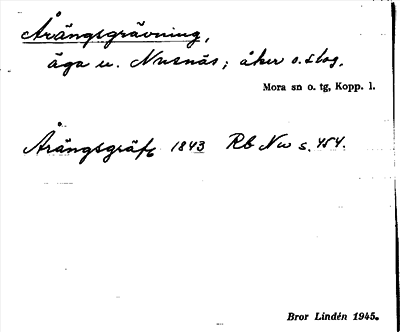 Årängsgrävning,
äga u. Nusnäs; åker o. slog.
Mora sn o. tg, Kopp. l.
Årängsgräft 1843 Rb Nw s. 454.
Bror Lindén 1945.